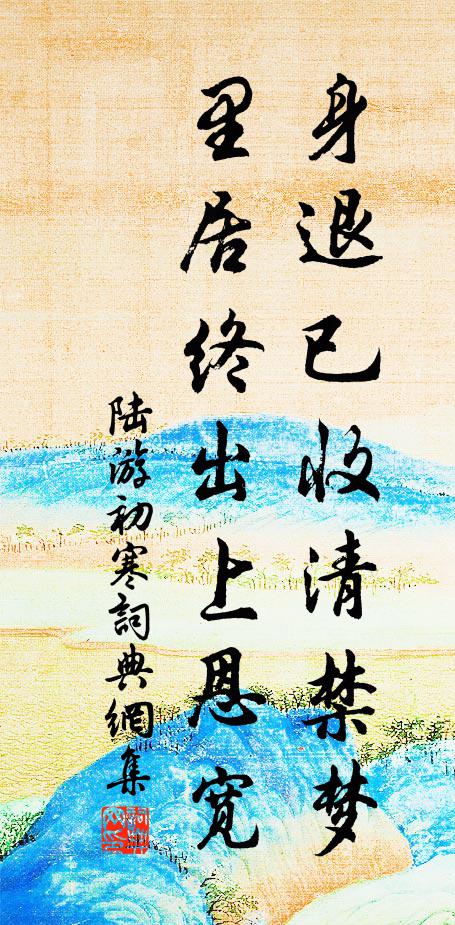 身退已收清禁梦
里居终出上恩宽
陆游初寒詞典網集